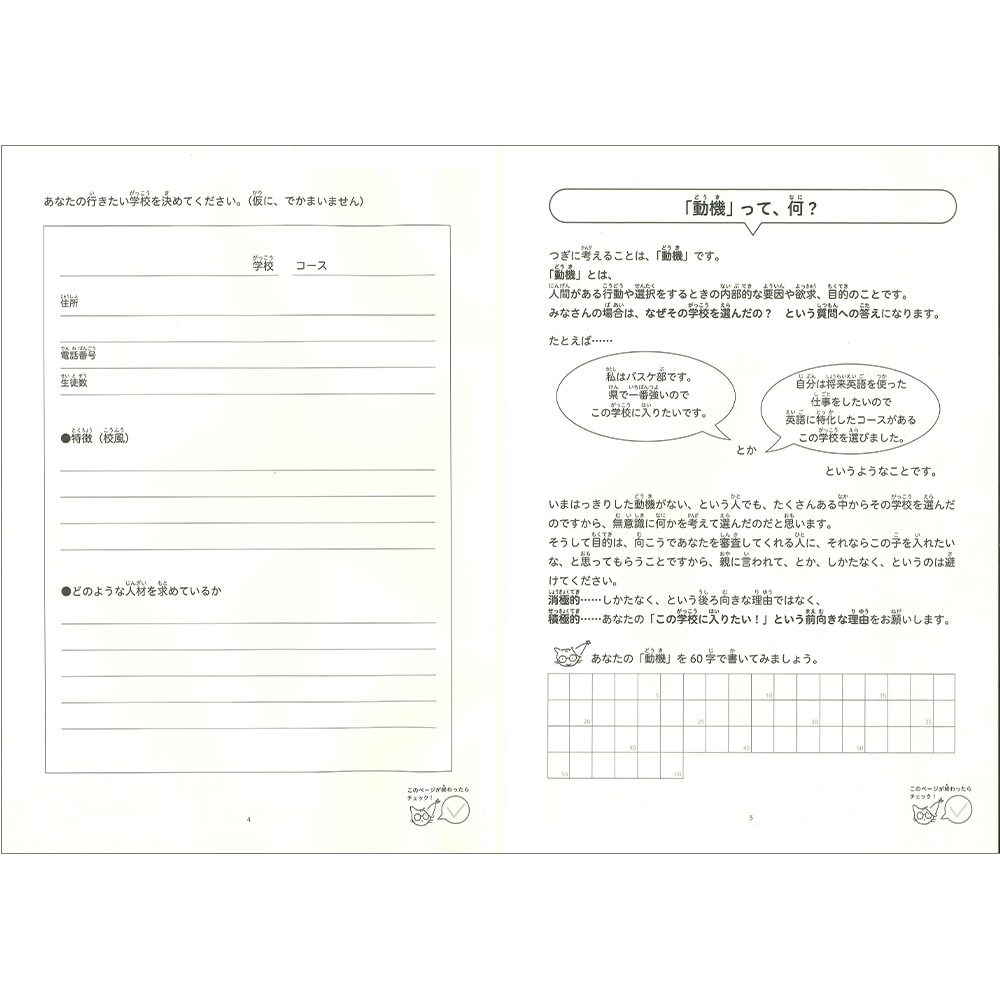 あなたの行きたい学校を決めてください。（仮に、でかまいません）
学校　コース
住所
電話番号
生徒数
●特徴（校風）
●どのような人材を求めているか
このページが終わったら
チェック！
4
「動機」って、何？
つぎに考えることは、「動機」です。
「動機」とは、
人間がある行動や選択をするときの内部的な要因や欲求、目的のことです。
みなさんの場合は、なぜその学校を選んだの？　という質問への答えになります。
たとえば……
私はバスケ部です。
県で一番強いので
この学校に入りたいです。
とか
自分は将来英語を使った
仕事をしたいので
英語に特化したコースがある
この学校を選びました。
というようなことです。
いまはっきりした動機がない、という人でも、たくさんある中からその学校を選んだ
のですから、無意識に何かを考えて選んだのだと思います。
そうして目的は、向こうであなたを審査してくれる人に、それならこの子を入れたい
な、と思ってもらうことですから、親に言われて、とか、しかたなく、というのは避
けてください。
消極的……しかたなく、という後ろ向きな理由ではなく、
積極的……あなたの「この学校に入りたい！」という前向きな理由をお願いします。
あなたの「動機」を60字で書いてみましょう。
5 10 15
20 25 30 35
40 45 50
55 60
このページが終わったら
チェック！
5